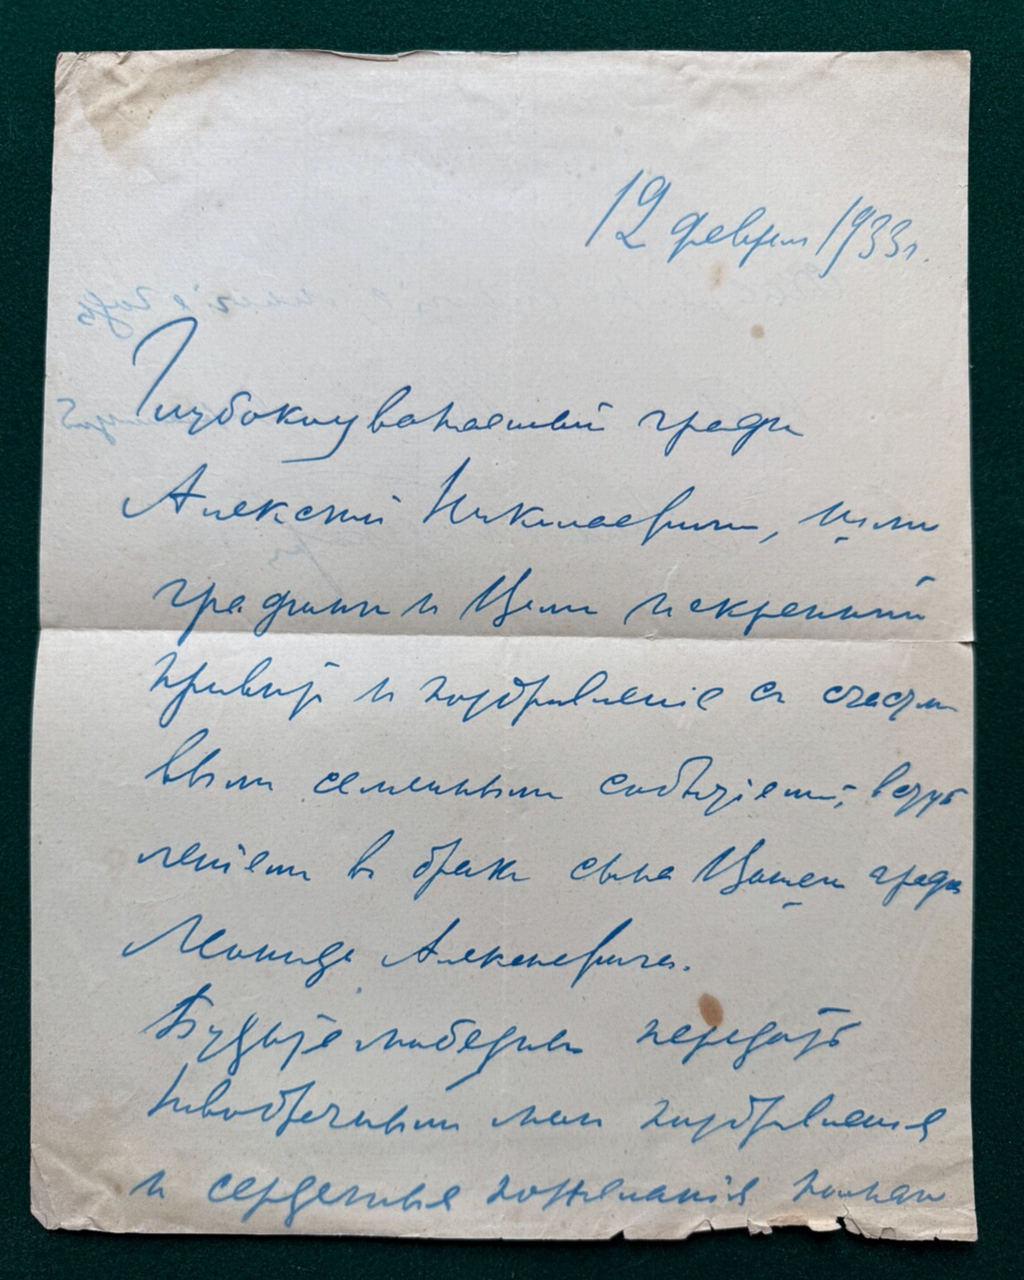 12 февраля 1933г.
Глубокоуважаемый граф
Алексей Николаевич, шлю
графине и Вам искренний
привет и поздравление с счастли
вым семейным событием, вступ
лением в брак сына Вашего графа
Леонида Алексеевича.
Будьте любезны передать
новобрачным мои поздравления
и сердечные пожелания полного